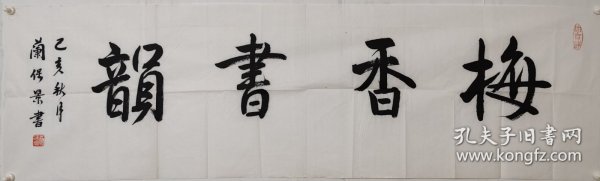 梅香書韻
己亥秋月
蘭保景書
孔夫子旧書网
www.kongfz.com